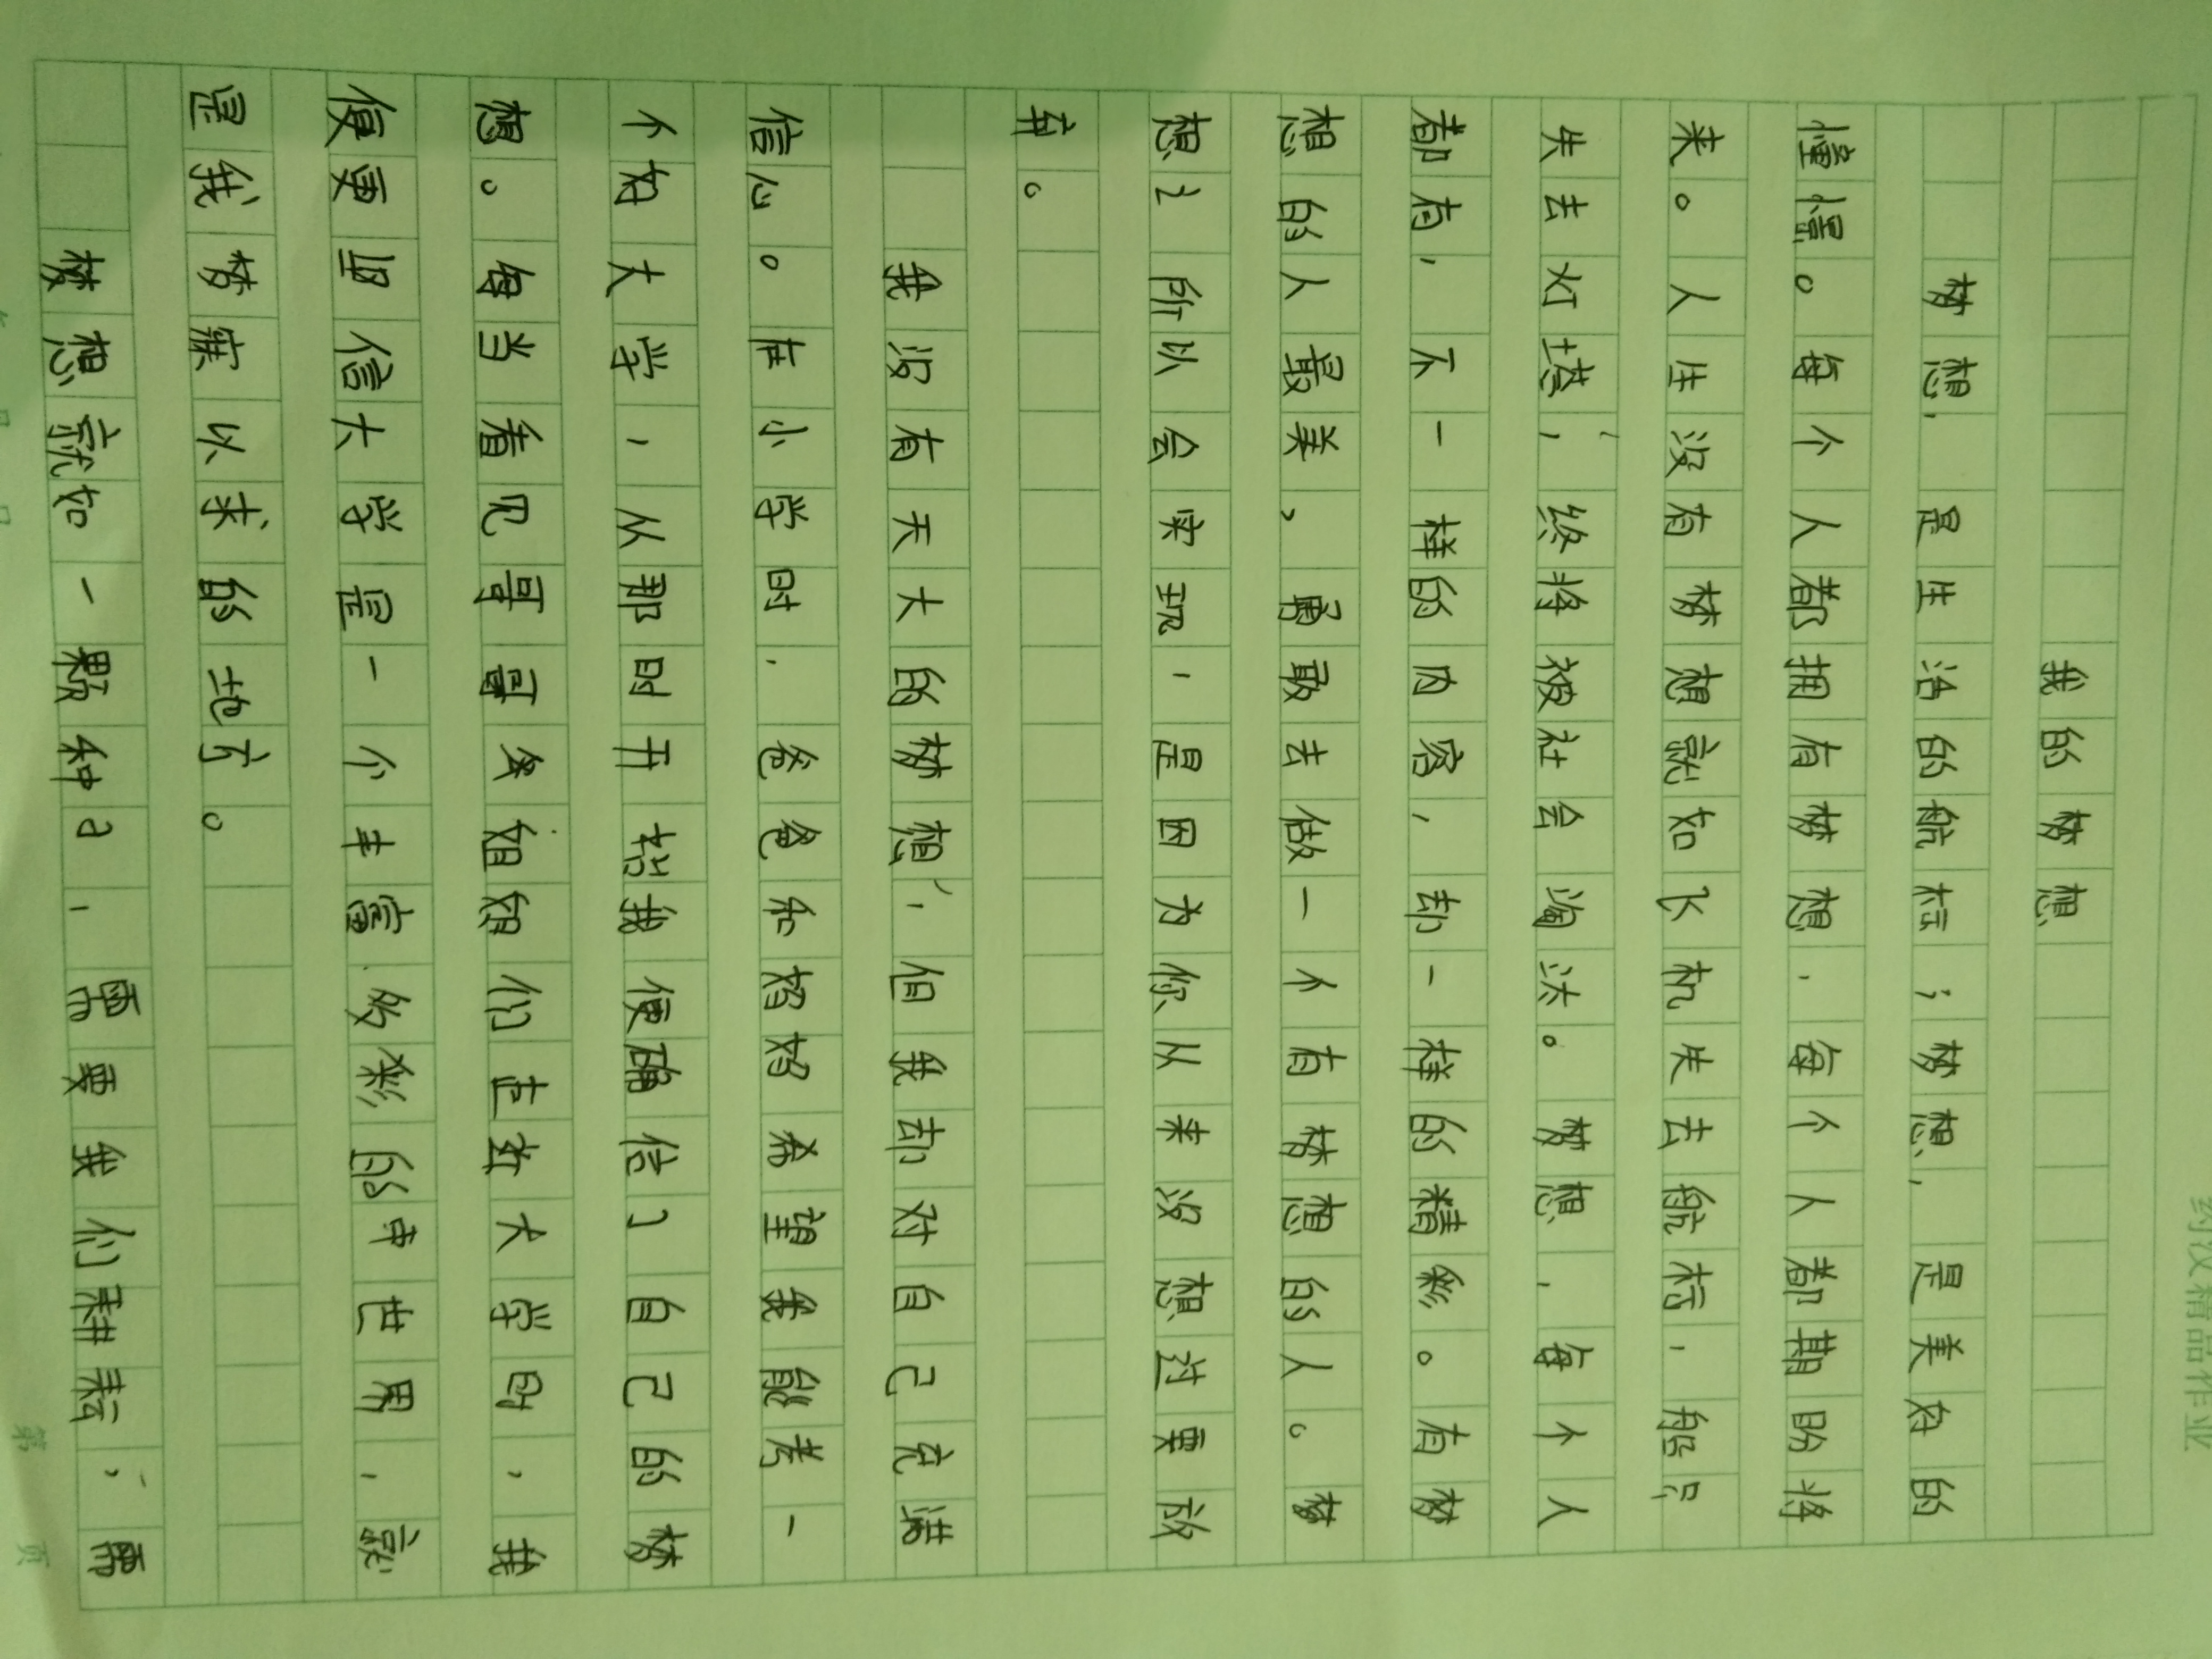 我的梦想
梦想,是生活的航标;梦想,是美好的
憧憬。每个人都拥有梦想,每个人都期盼将
来。人生没有梦想就如飞机失去航标,船只
失去灯塔,终将被社会淘汰。梦想,每个人
都有,不一样的内容,却一样的精彩。有梦
想的人最美,勇敢去做一个有梦想的人。梦
想之所以会实现,是因为你从来没想过要放
弃。
我没有天大的梦想,但我却对自己充满
信心。在小学时,爸爸和妈妈希望我能考一
个好大学,从那时开始我便确信了自己的梦
想。每当看见哥哥和姐姐们走进大学时,我
便更坚信大学是一个丰富多彩的中世界,就
是我梦寐以求的地方。
梦想就如一颗种子,需要我们耕耘,需
约汉精品作业
第 页